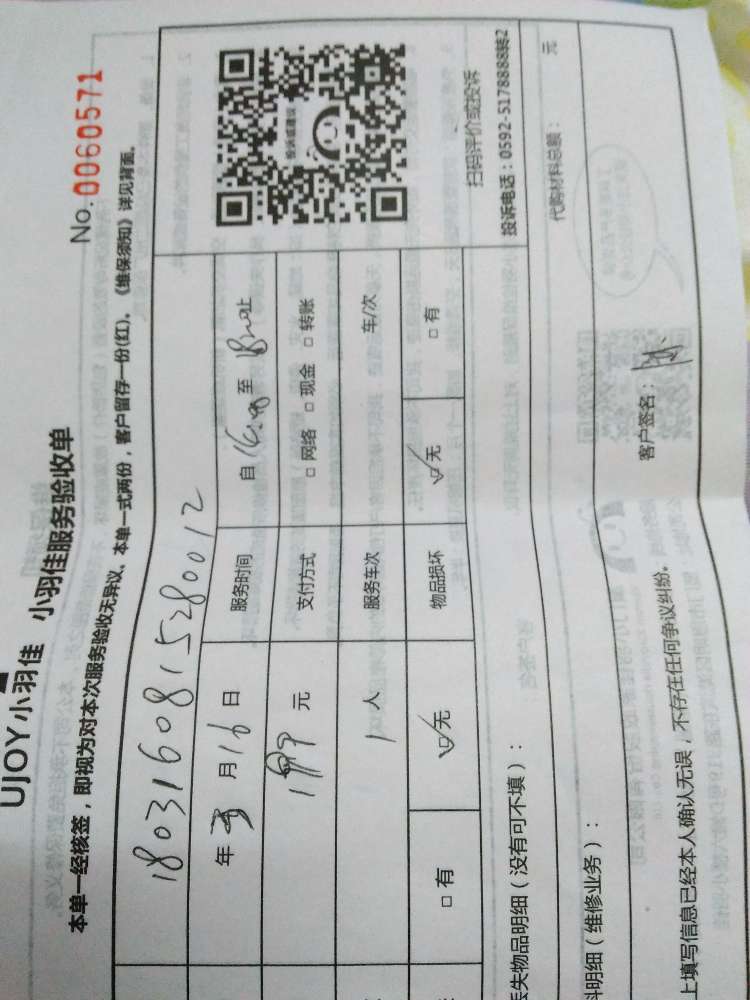 UJOY小羽佳 小羽佳服务验收单
No.0060571
本单一经核签，即视为对本次服务验收无异议。本单一式两份，客户留存一份(红)。《维保须知》详见背面。
1803160815280012
年 月16日 服务时间 自 至 止
元 支付方式 □网络 □现金 □转账
1人 服务车次 车/次
□有 无 物品损坏 无 □有
投诉或建议
扫码评价或投诉
投诉电话：0592-5178888转2
丢失物品明细（没有可不填）：
料明细（维修业务）： 代购材料总额： 元
上填写信息已经本人确认无误，不存在任何争议纠纷。 客户签名：